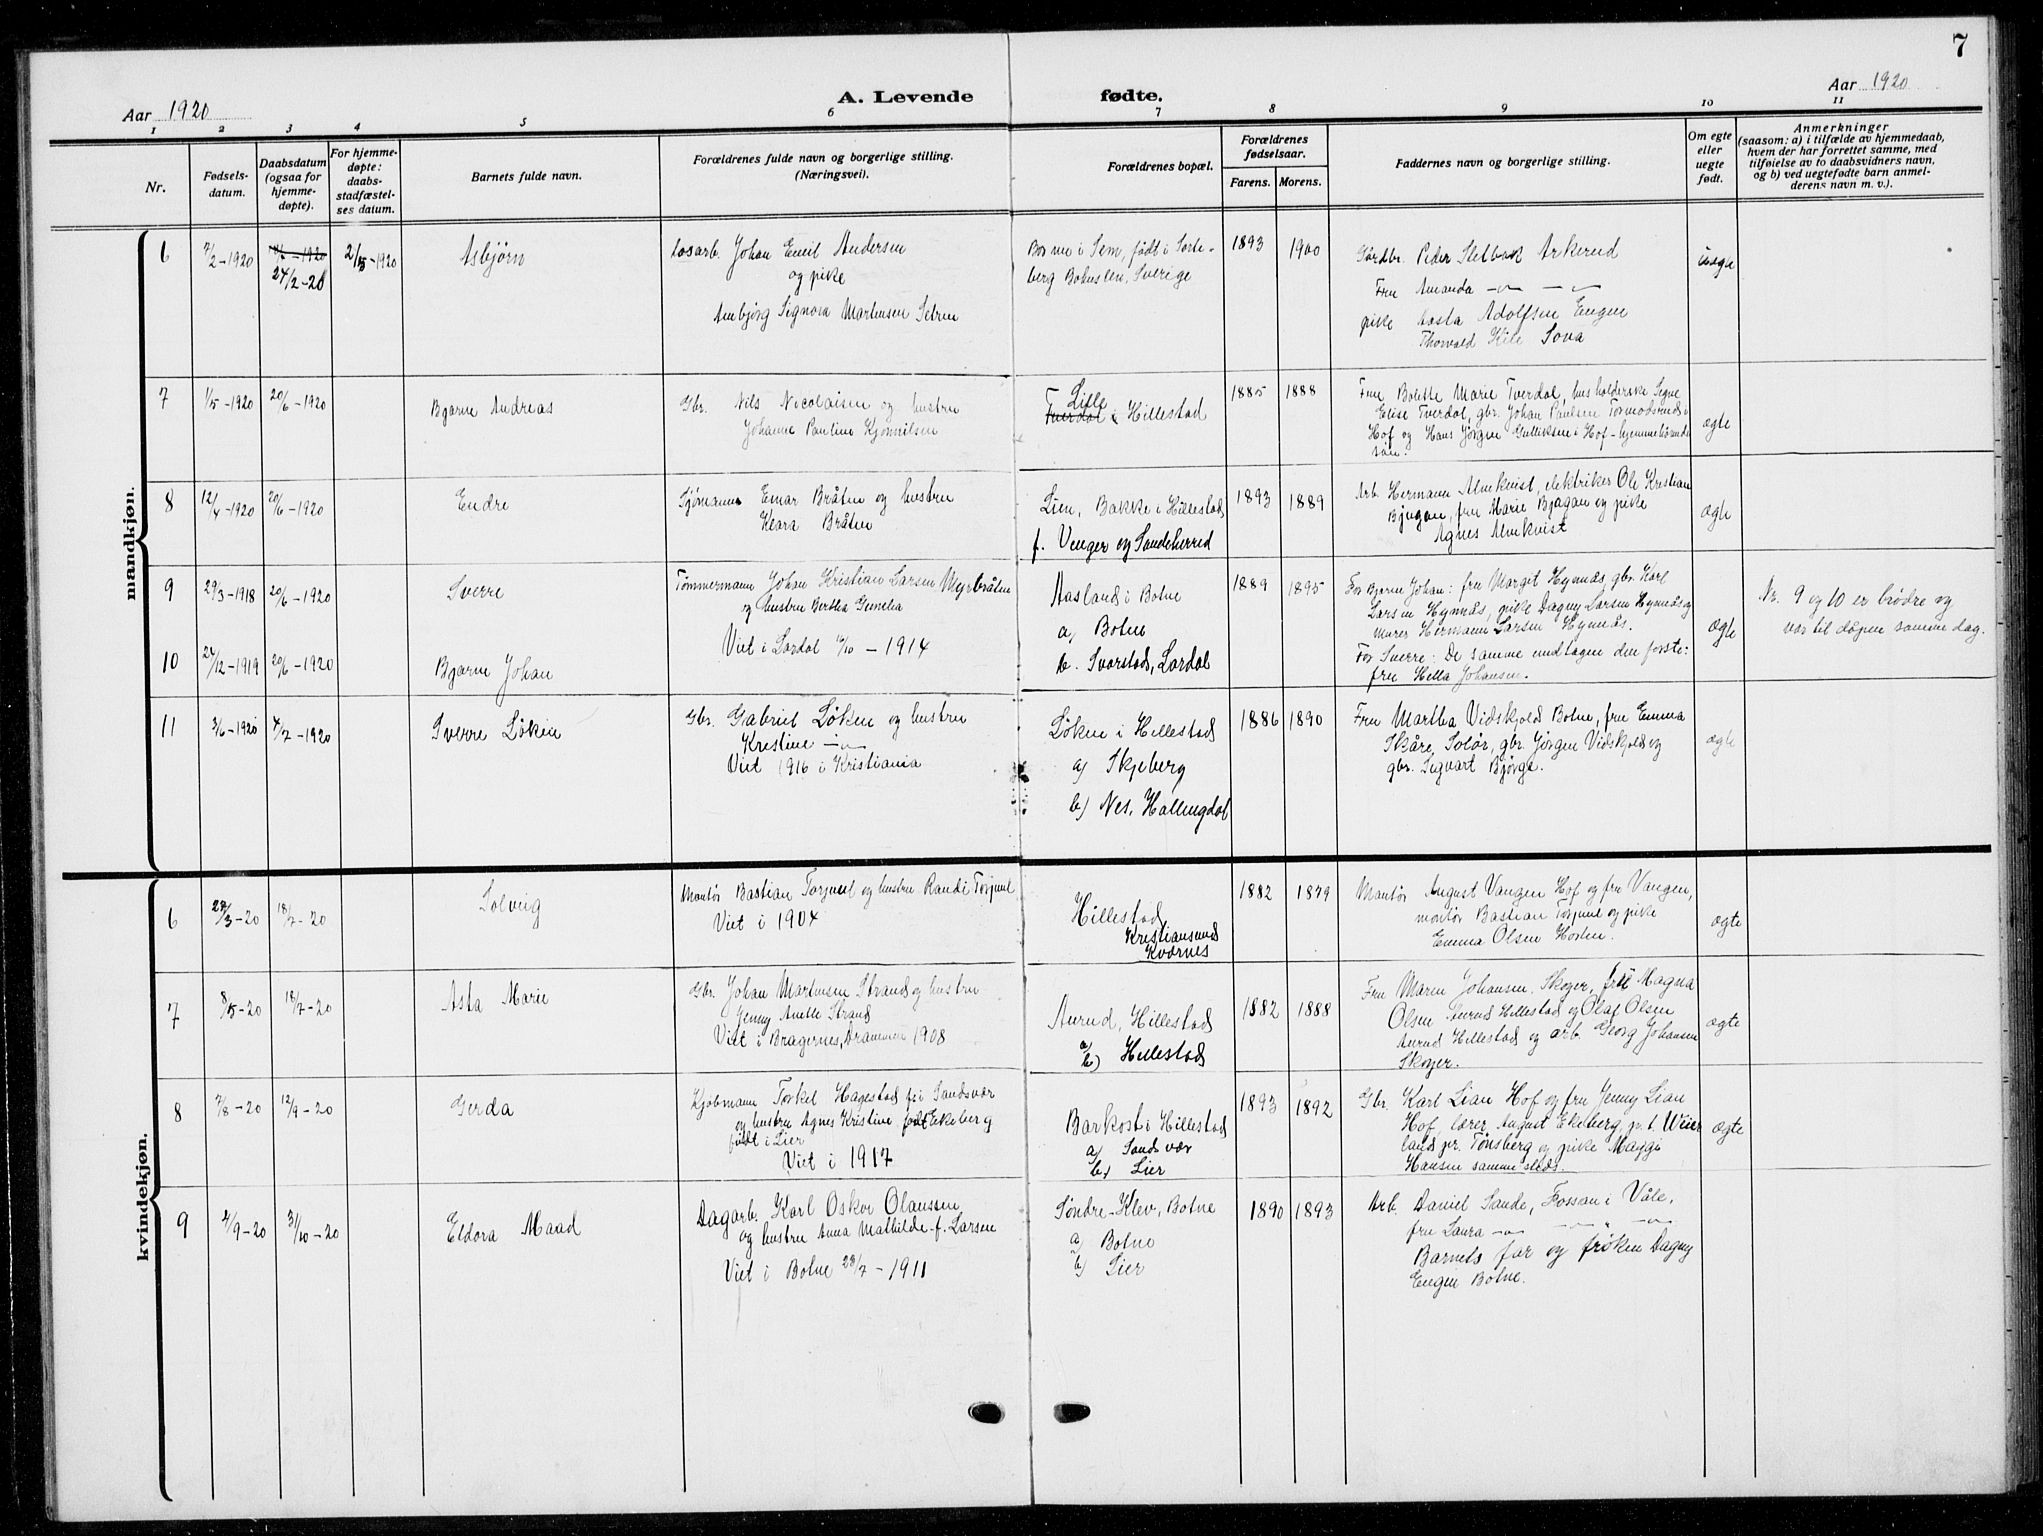 7
Aar 1920
A. Levende fødte.
Aar 1920
1 2 3 4 5 6 7 8 9 10 11
Nr.
Fødsels-
datum.
Daabsdatum
(ogsaa for
hjemme-
døpte).
For hjemme-
døpte:
daabs-
stadfæstel-
ses datum.
Barnets fulde navn.
Forældrenes fulde navn og borgerlige stilling.
(Næringsvei).
Forældrenes bopæl.
Forældrenes
fødselsaar.
Farens. Morens.
Faddernes navn og borgerlige stilling.
Om egte
eller
uegte
født.
Anmerkninger
(saasom: a) i tilfælde av hjemmedaab,
hvem der har forrettet samme, med
tilføielse av to daabsvidners navn,
og b) ved uegtefødte barn anmel-
derens navn m. v.).
mandkjøn.
6
7/2-1920
24/2-20
2/5-1920
Asbjørn
Losarb. Johan Emil Andersen
og pike
Ambjørg Signora Martinsen Setren
Bor nu i Sem, født i Sorte-
berg Bohuslen, Sverige
1893
1900
Gårdbr. Peder Arkerud
Fru Amanda
pike Adolfsen Engen
Thorvald Sova
uegte
7
1/5-1920
20/6-1920
Bjarne Andreas
Gbr. Nils Nicolaisen og hustru
Johanne Pauline
Lille
Tverdal i Hillestad
1885
1888
Frue Bolette Marie Tverdal, husholderske Signe
Elise Tverdal, gbr. Johan Paulsen Tormodsrud i
Hof og Hans Jørgen Gulliksen i Hof - hjemmehørende
søn.
ægte
8
12/4-1920
20/6-1920
Endre
Sjømann Einar Bråten og hustru
Klara Bråten
Lien, Bakke i Hillestad
f. Venger og Sandeherred
1893
1889
Arb. Hermann Almkvist, elektriker Ole Kristian
Bjugan, fru Marie Bjugan og pike
Agnes Almkvist
ægte
9
29/3-1918
20/6-1920
Sverre
Tømmermann Johan Kristian Larsen Myrbråten
og hustru Bertha Gunelia
Viet i Lardal 11/10 - 1914
Aasland i Botne
a) Botne
b. Svarstad, Lardal
1889
1895
For Bjarne Johan: fru Margit Hynnås, gbr. Karl
Larsen Hynnås, pike Dagny Larsen Hynnås og
murer Hermann Larsen Hynnås.
For Sverre: De samme undtagen den første:
fru Hella Johansen.
ægte
Nr. 9 og 10 er brødre og
var til dåpen samme dag.
10
24/12-1919
20/6-1920
Bjarne Johan
11
3/6-1920
4/7-1920
Sverre Løken
Gbr. Gabriel Løken og hustru
Kristine
Viet 1916 i Kristiania
Løken i Hillestad
a) Skjeberg
b) Nes, Hallingdal
1886
1890
Fru Martha Vidskjold Botne, fru Emma
Skåre, Solør, gbr. Jørgen Vidskjold og
gbr. Sigvart Bjørge.
ægte
kvindekjøn.
6
28/3-20
18/7-20
Solveig
Montør Bastian Torjuul og hustru Randi Torjuul
Viet i 1904
Hillestad
Kristiansund
Kværnes
1882
1879
Montør August Vangen Hof og fru Vangen,
montør Bastian Torjuul og pike
Emma Olsen Horten.
ægte
7
8/5-20
18/7-20
Asta Marie
Gbr. Johan Martinsen Strand og hustru
Jenny Anette Strand
Viet i Bragernes, Drammen 1908
Aurud, Hillestad
a/b) Hillestad
1882
1888
Fru Maren Johansen, Skoger, fru Magna
Olsen Aurud Hillestad og Olaf Olsen
Aurud Hillestad og arb. Georg Johansen
Skoger.
ægte
8
7/8-20
12/9-20
Gerda
Kjøbmann Torkel Hagestad f. i Sandsvær
og hustru Agnes Kristine født Ekeberg
født i Lier
Viet i 1917
Barkost i Hillestad
a) Sandsvær
b) Lier
1893
1892
Gbr. Karl Lian Hof og fru Jenny Lian
Hof, lærer August Ekeberg, p. t. Weier
land pr. Tønsberg og pike Maggi
Hansen samme steds.
ægte
9
4/9-20
31/10-20
Eldora Maad
Dagarb. Karl Oskar Olaussen
og hustru Anna Mathilde f. Larsen
Viet i Botne 23/7 - 1911
Søndre-Klev, Botne
a) Botne
b) Lier
1890
1893
Arb. Daniel Sande, Fossan i Våle,
fru Laura
Barnets far og frøken Dagny
Engen Botne.